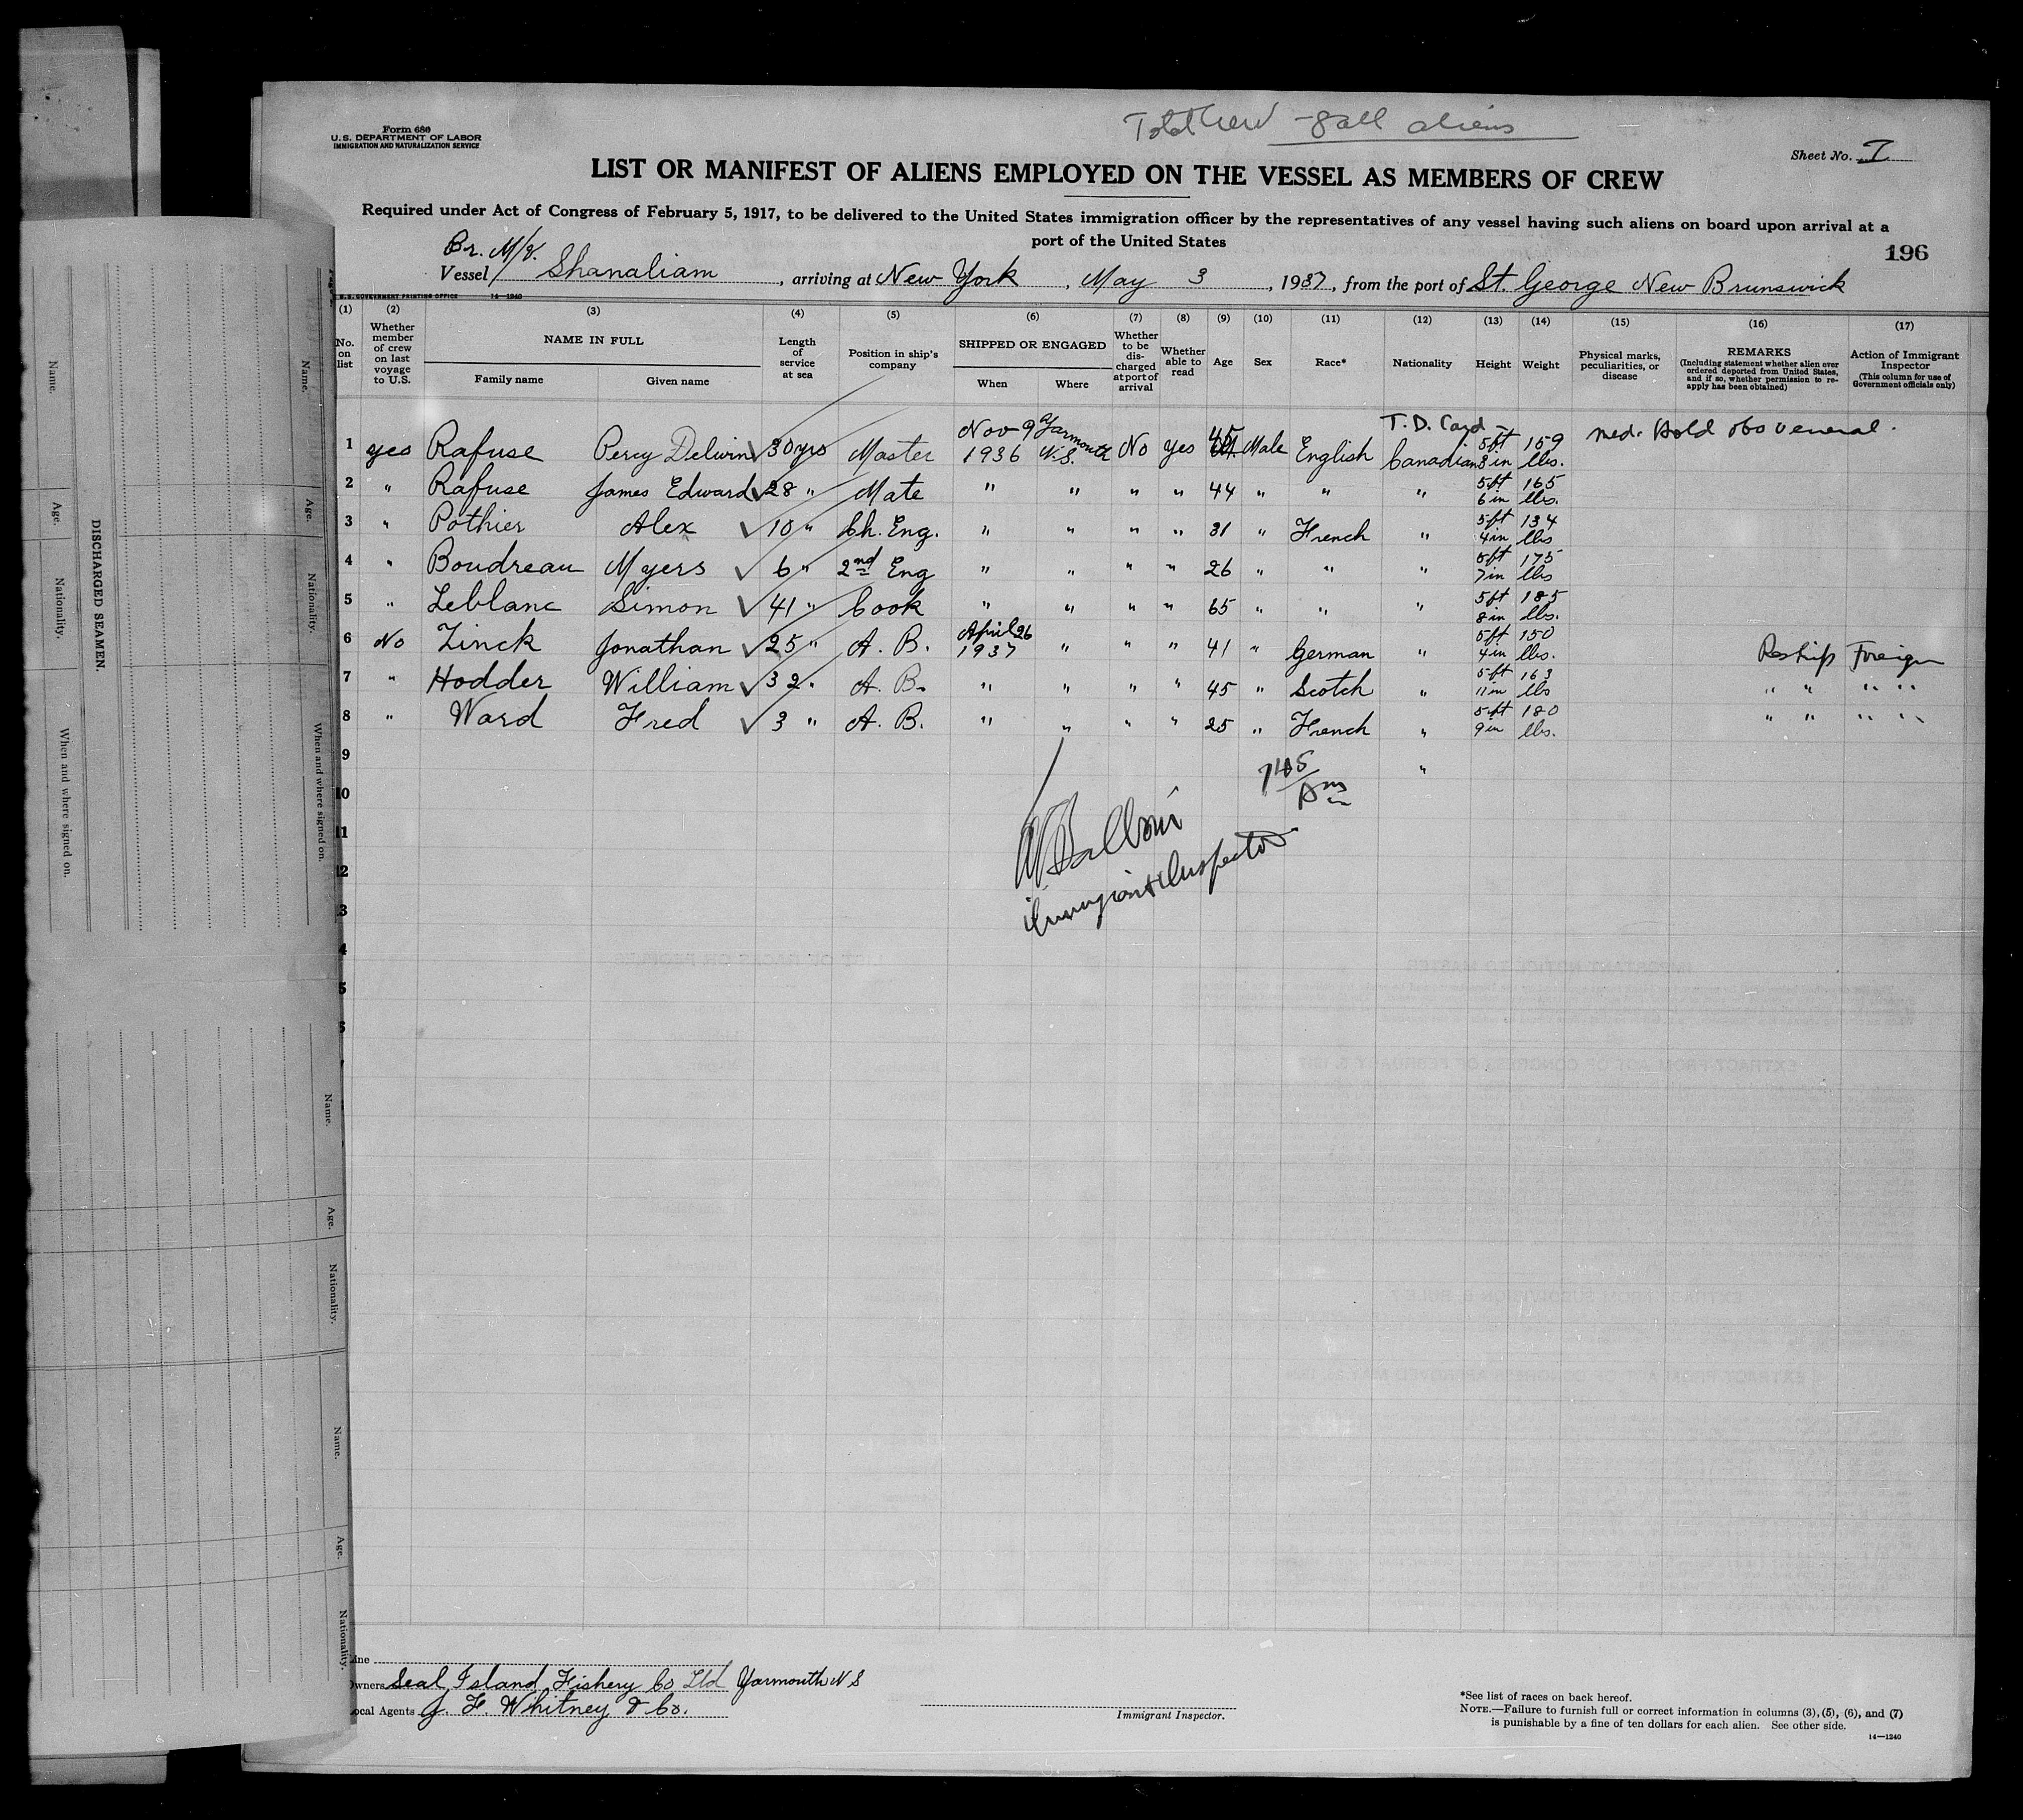 Total Crew - 8 all aliens
Form 680
U.S. DEPARTMENT OF LABOR
IMMIGRATION AND NATURALIZATION SERVICE
Sheet No. I
LIST OR MANIFEST OF ALIENS EMPLOYED ON THE VESSEL AS MEMBERS OF CREW
Required under Act of Congress of February 5, 1917, to be delivered to the United States immigration officer by the representatives of any vessel having such aliens on board upon arrival at a
port of the United States
196
Br. M/V.
Vessel Shanaliam, arriving at New York, May 3, 1937, from the port of St. George New Brunswick
U.S. GOVERNMENT PRINTING OFFICE 14—1240
(1) No. on list
(2) Whether member of crew on last voyage to U.S.
(3) NAME IN FULL Family name Given name
(4) Length of service at sea
(5) Position in ship's company
(6) SHIPPED OR ENGAGED When Where
(7) Whether to be discharged at port of arrival
(8) Whether able to read
(9) Age
(10) Sex
(11) Race*
(12) Nationality
(13) Height
(14) Weight
(15) Physical marks, peculiarities, or disease
(16) REMARKS (Including statement whether alien ever ordered deported from United States, and if so, whether permission to reapply has been obtained)
(17) Action of Immigrant Inspector (This column for use of Government officials only)
T. D. Card -
1 yes Rafuse Percy Delwin 30 yrs Master Nov 9 1936 Yarmouth N.S. No Yes 45 Male English Canadian 5 ft 8 in 159 lbs. med. Hold obs veneral.
2 " Rafuse James Edward 28 " Mate " " " " 44 " " " 5 ft 6 in 165 lbs.
3 " Pothier Alex 10 " Ch. Eng. " " " " 31 " French " 5 ft 4 in 134 lbs
4 " Boudreau Myers 6 " 2nd Eng " " " " 26 " " " 5 ft 7 in 175 lbs
5 " Leblanc Simon 41 " Cook " " " " 65 " " " 5 ft 8 in 185 lbs.
6 No Zinck Jonathan 25 " A. B. April 26 1937 " " " 41 " German " 5 ft 4 in 150 lbs. Reships Foreign
7 " Hodder William 32 " A. B. " " " " 45 " Scotch " 5 ft 11 in 163 lbs " " " "
8 " Ward Fred 3 " A. B. " " " " 25 " French " 5 ft 9 in 180 lbs. " " " "
9 "
10
11
12
3
4
5
6
Immigrant Inspector
Line
Owners Seal Island Fishery Co Ltd Yarmouth N S
Local Agents J. F. Whitney & Co.
Immigrant Inspector.
*See list of races on back hereof.
NOTE.—Failure to furnish full or correct information in columns (3), (5), (6), and (7)
is punishable by a fine of ten dollars for each alien. See other side.
14—1240
DISCHARGED SEAMEN.
Name.
Age.
Nationality.
When and where signed on.
Name.
Age.
Nationality.
When and where signed on.
Name.
Age.
Nationality.
Name.
Age.
Nationality.